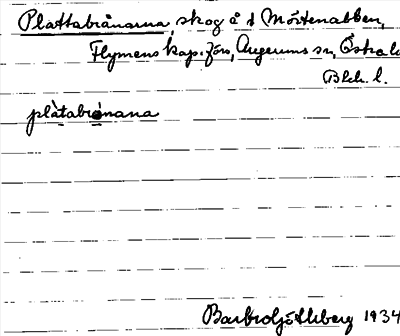 Plattabrånarna, skog å d Mörtenabben,
Flymens kap.förs, Augerums sn, Östra h
Blek. l.
plàtabrånana
Barbro Götheberg 1934